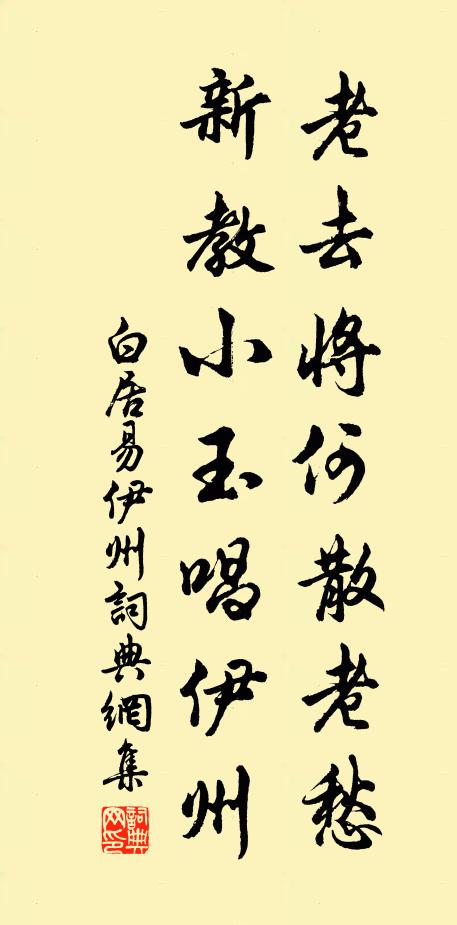 老去將何散老愁
新教小玉唱伊州
白居易伊州詞典網集
詞典網印